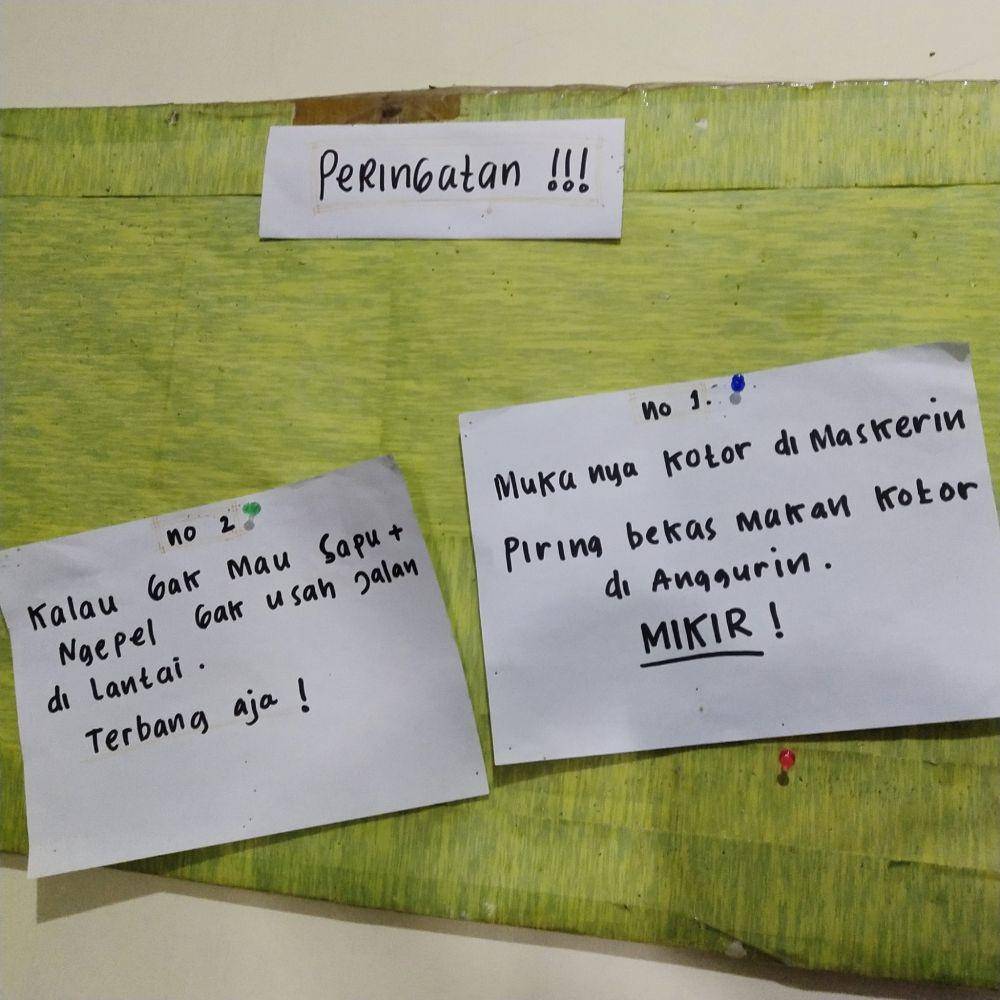 PeRINGatan !!!
no 1.
Muka nya kotor di Maskerin
Piring bekas makan kotor
di Anggurin.
MIKIR !
no 2
Kalau Gak Mau Sapu +
Ngepel Gak usah Jalan
di Lantai.
Terbang aja !